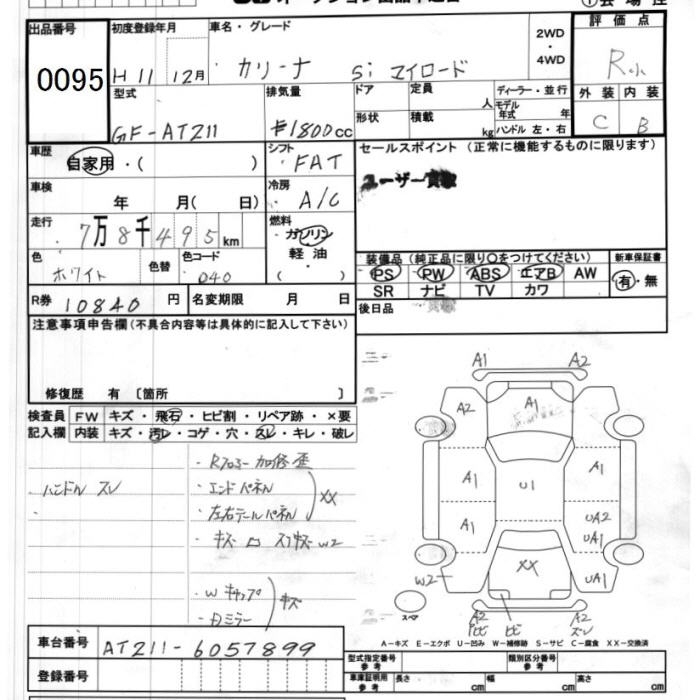 出品番号 初度登録年月 車名・グレード 2WD・4WD 評価点
0095 H 11 12月 カリーナ Si マイロード R
型式 排気量 ドア 定員 人 ディーラー・並行 外装 内装
GF-AT211 1800cc 形状 積載 kg モデル年式 年 ハンドル 左・右 C B
車歴 自家用・( ) シフト FAT セールスポイント (正常に機能するものに限ります)
車検 年 月( 日) 冷房 A/C ユーザー買取
走行 7万8千495km 燃料 ガソリン
軽油
( )
色 ホワイト 色替 色コード 040
装備品 (純正品に限り○をつけてください) 新車保証書
PS PW ABS エアB AW 有・無
SR ナビ TV カワ
R券 10840円 名変期限 月 日 後日品
注意事項申告欄(不具合内容等は具体的に記入して下さい)
修復歴 有 〔箇所 〕
検査員 FW キズ・飛石・ヒビ割・リペア跡・×要
記入欄 内装 キズ・汚レ・コゲ・穴・スレ・キレ・破レ
ハンドル スレ
・Rフロアー加修歪
・エンドパネル
・左右テールパネル XX
・キズ
・Wキャップ
・Dミラー キズ
A1 A2
A2 A1
A1 U1 A1
A1 UA2
UA1
W2 XX UA1
スペア
ヒビ ヒビ A2
スレ
A-キズ E-エクボ U-凹み W-補修跡 S-サビ C-腐食 XX-交換済
車台番号 AT211-6057899
型式指定番号 参考 類別区分番号 参考
登録番号 車庫証明用 参考 長さ cm 幅 cm 高さ cm